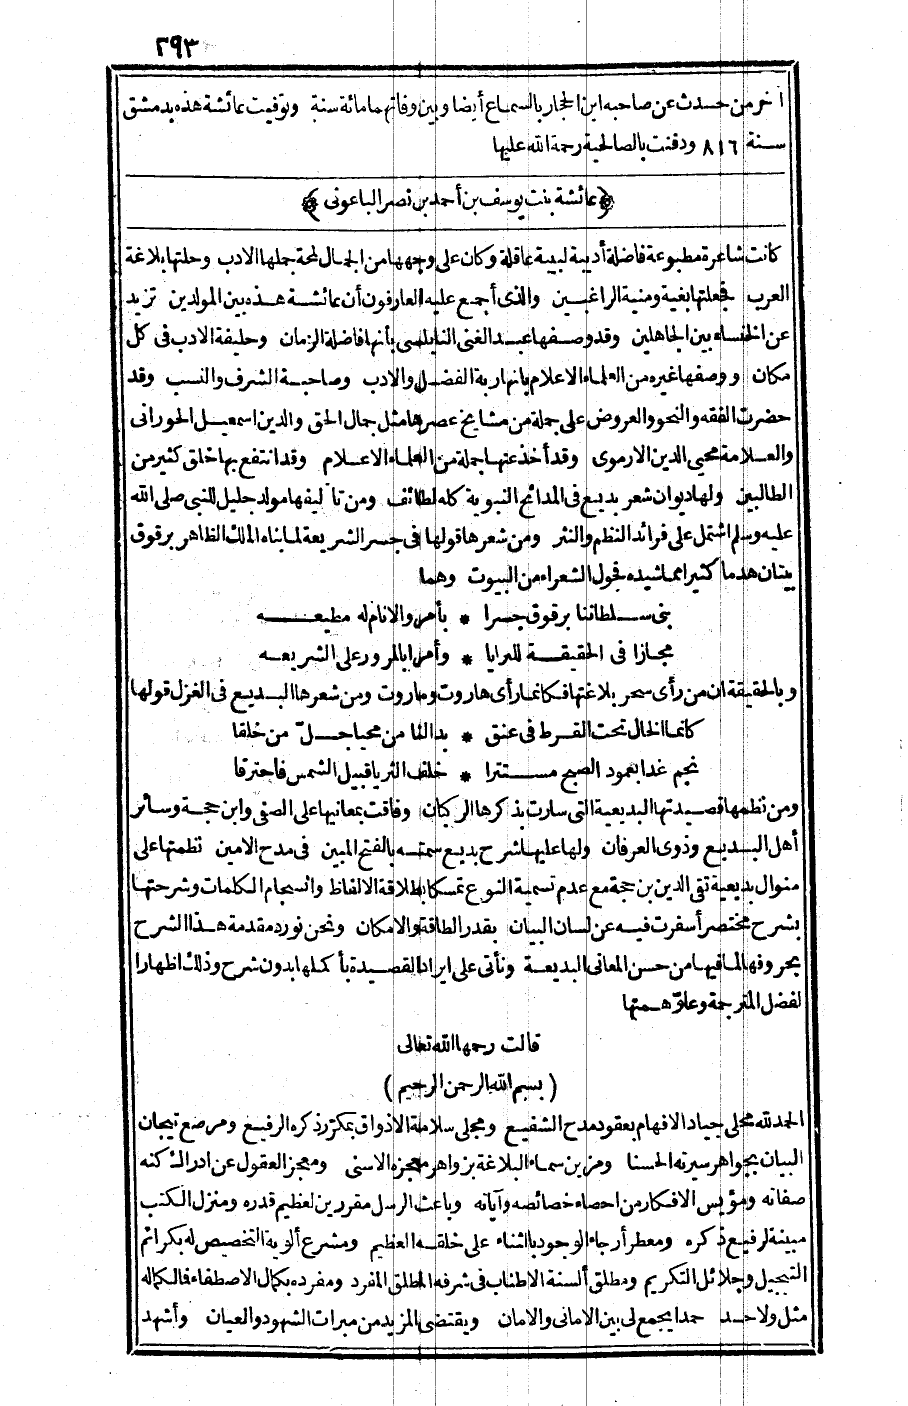 ٢٩٣
آخر من حدث عن صاحبه ابن الحجار بالسماع أيضا وبين وفاتهما مائة سنة وتوفيت عائشة هذه بدمشق
سنة ٨١٦ ودفنت بالصالحية رحمة الله عليها
﴿عائشة بنت يوسف بن أحمد بن نصر الباعونى﴾
كانت شاعرة مطبوعة فاضلة أديبة لبيبة عاقلة وكان على وجهها من الجمال لمحة جملها الادب وحلتها بلاغة
العرب فجعلتها بغية ومنية الراغبين والذى أجمع عليه العارفون أن عائشة هذه بين المولدين تزيد
عن الخنساء بين الجاهلين وقد وصفها عبد الغنى النابلسى بأنها فاضلة الزمان وحليفة الادب فى كل
مكان ووصفها غيره من العلماء الاعلام بانها ربة الفضل والادب وصاحبة الشرف والنسب وقد
حضرت الفقه والنحو والعروض على جملة من مشايخ عصرها مثل جمال الحق والدين اسمعيل الحورانى
والعلامة محيي الدين الارموى وقد أخذ عنها جملة من العلماء الاعلام وقد انتفع بها خلق كثير من
الطالبين ولها ديوان شعر بديع فى المدائح النبوية كله لطائف ومن تآليفها مولد جليل للنبى صلى الله
عليه وسلم اشتمل على فرائد النظم والنثر ومن شعرها قولها فى جسر الشريعة لما بناه الملك الظاهر برقوق
بيتان هدما كثيرا مما شيده فحول الشعراء من البيوت وهما
بنى سلطاننا برقوق جسرا * بأمر والانام له مطيعه
مجازا فى الحقيقة للبرايا * وأمرا بالمرور على الشريعه
وبالحقيقة ان من رأى سحر بلاغتها فكانما رأى هاروت وماروت ومن شعرها البديع فى الغزل قولها
كانما الخال تحت القرط فى عنق * بدا لنا من محيا جلّ من خلقا
نجم غدا بعمود الصبح مستترا * خلف الثريا قبيل الشمس فاحترقا
ومن نظمها قصيدتها البديعية التى سارت بذكرها الركبان وفاقت بمعانيها على الصفى وابن حجة وسائر
أهل البديع وذوى العرفان ولها عليها شرح بديع سمته بالفتح المبين فى مدح الامين نظمتها على
منوال بديعية تقى الدين بن حجة مع عدم تسمية النوع تمسكا بطلاقة الالفاظ وانسجام الكلمات وشرحتها
بشرح مختصر أسفرت فيه عن لسان البيان بقدر الطاقة والامكان ونحن نورد مقدمة هذا الشرح
بحروفها لما فيها من حسن المعانى البديعة ونأتى على ايراد القصيدة بأكملها بدون شرح وذلك اظهارا
لفضل المترجمة وعلوّ همتها
قالت رحمها الله تعالى
(بسم الله الرحمن الرحيم)
الحمد لله محلى جياد الافهام بعقود مدح الشفيع ومجلى سلامة الاذواق بمكرّر ذكره الرفيع ومرصع تيجان
البيان بجواهر سيرته الحسنا ومزين سماء البلاغة بزواهر معجزه الاسنى ومعجز العقول عن ادراك كنه
صفاته ومؤيس الافكار من احصاء خصائصه وآياته وباعث الرسل مقررين لعظيم قدره ومنزل الكتب
مبينة لرفيع ذكره ومعطر أرجاء الوجود بالثناء على خلقه العظيم ومشرع ألوية التخصيص له بكرائم
التبجيل وجلائل التكريم ومطلق ألسنة الاطناب فى شرفه المطلق المفرد ومفرده بكمال الاصطفاء فالكماله
مثل ولا حد حمدا يجمع لى بين الامانى والامان ويقتضى المزيد من مبرات الشهود والعيان وأشهد